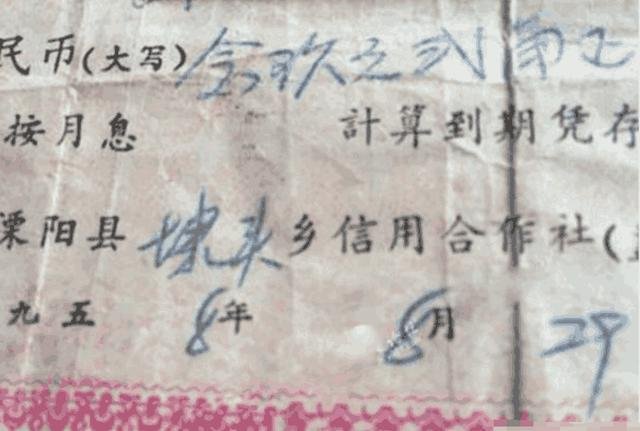 民币(大写)
按月息 計算到期凭存
溧阳县埭头乡信用合作社(
九五8年8月29